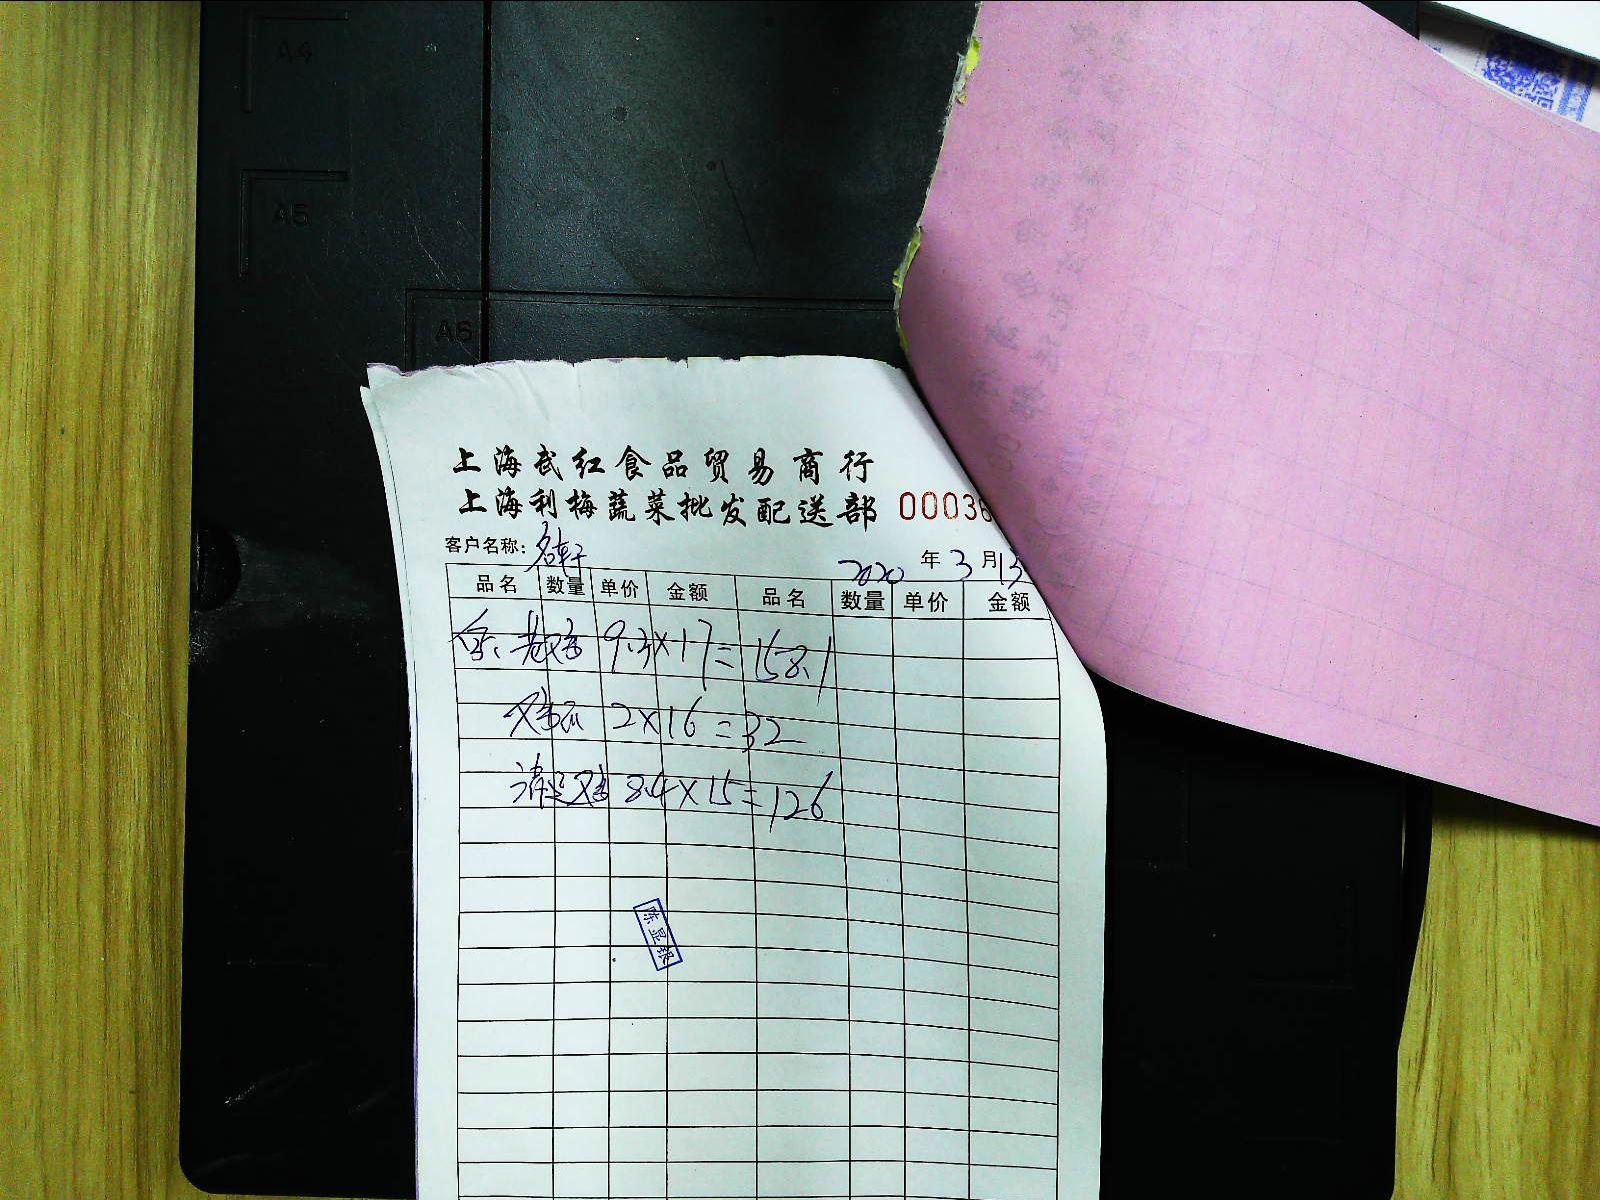 A4
A5
A6
上海武红食品贸易商行
上海利梅蔬菜批发配送部 00036
客户名称: 名轩
2020 年 3 月 13
品名 数量 单价 金额 品名 数量 单价 金额
老鸡 9.3×17=158.1
2×16=32
鸡 8.4×15=126
陈显银